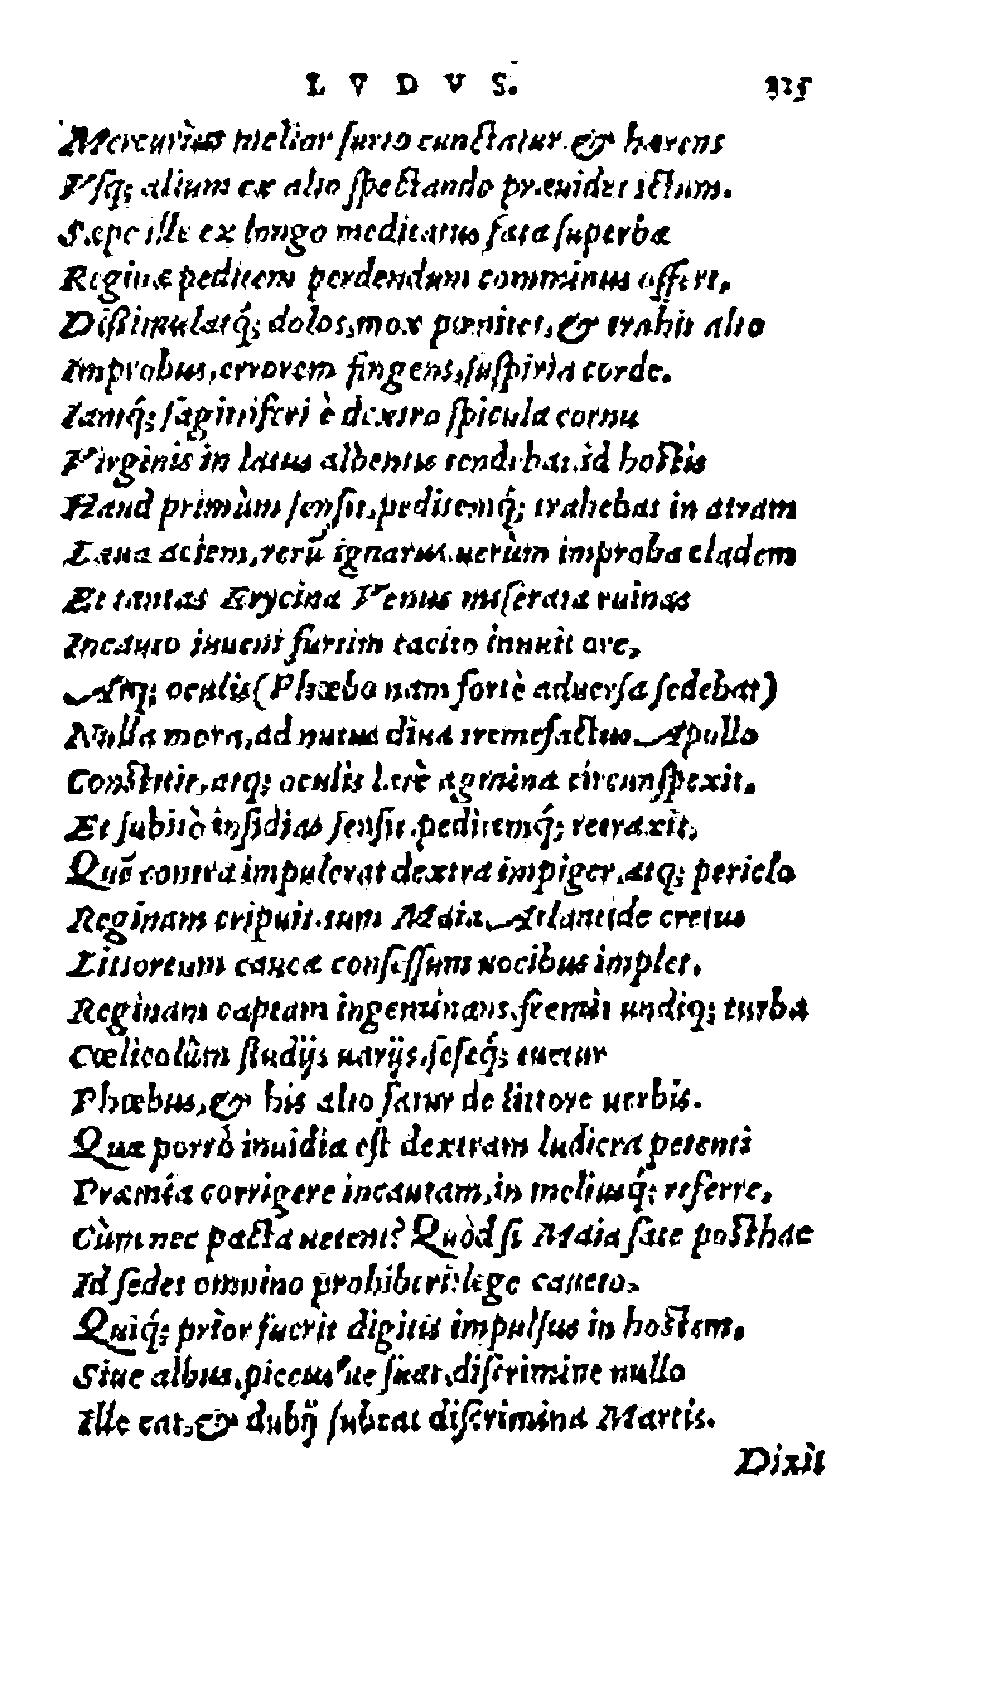 LVDVS. 125
Mercurius melior furto cunctatur, & hærens
Vsq; alium ex alio spectando præuidet ictum.
Sæpe ille ex longo meditatus fata superbæ
Reginæ peditem perdendum comminus offert,
Dissimulatq́; dolos, mox pœnitet, & trahit alto
Improbus, errorem fingens, suspiria corde.
Iamq́; sagittiferi è dextro spicula cornu
Virginis in latus albentis tendebat, id hostis
Haud primùm sensit, peditemq́; trahebat in atram
Læua aciem, rerū ignarus, uerùm improba cladem
Et tantas Erycina Venus miserata ruinas
Incauto iuueni furtim tacito innuit ore,
Atq; oculis (Phœbo nam fortè aduersa sedebat)
Nulla mora, ad nutus diuæ tremefactus Apollo
Constitit, atq; oculis latè agmina circunspexit.
Et subitò insidias sensit, peditemq́; retraxit,
Quē contra impulerat dextra impiger, atq; periclo
Reginam eripuit, tum Maia Atlantide cretus
Littoreum caueæ consessum uocibus implet,
Reginam captam ingeminans, fremit undiq; turba
Cœlicolûm studijs uarijs, seseq́; tuetur
Phœbus, & his alto fatur de littore uerbis.
Quæ porrò inuidia est dextram ludicra petenti
Præmia corrigere incautam, in meliusq́; referre,
Cùm nec pacta uetent? Quòd si Maia sate posthac
Id sedet omnino prohiberi: lege caueto,
Quiq́; prior fuerit digitis impulsus in hostem,
Siue albus, piceus'ue siuat, discrimine nullo
Ille eat, & dubij subeat discrimina Martis.
Dixit